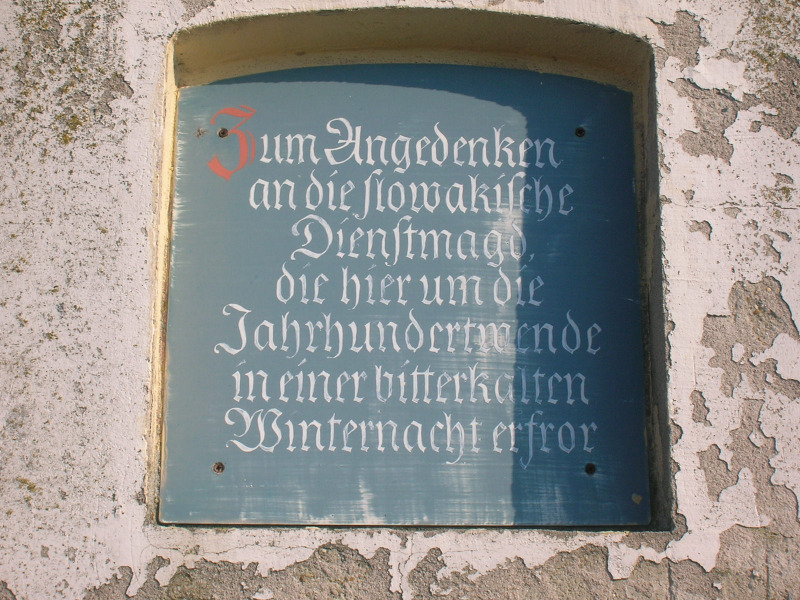 Zum Angedenken
an die ſlowakiſche
Dienſtmagd,
die hier um die
Jahrhundertwende
in einer bitterkalten
Winternacht erfror